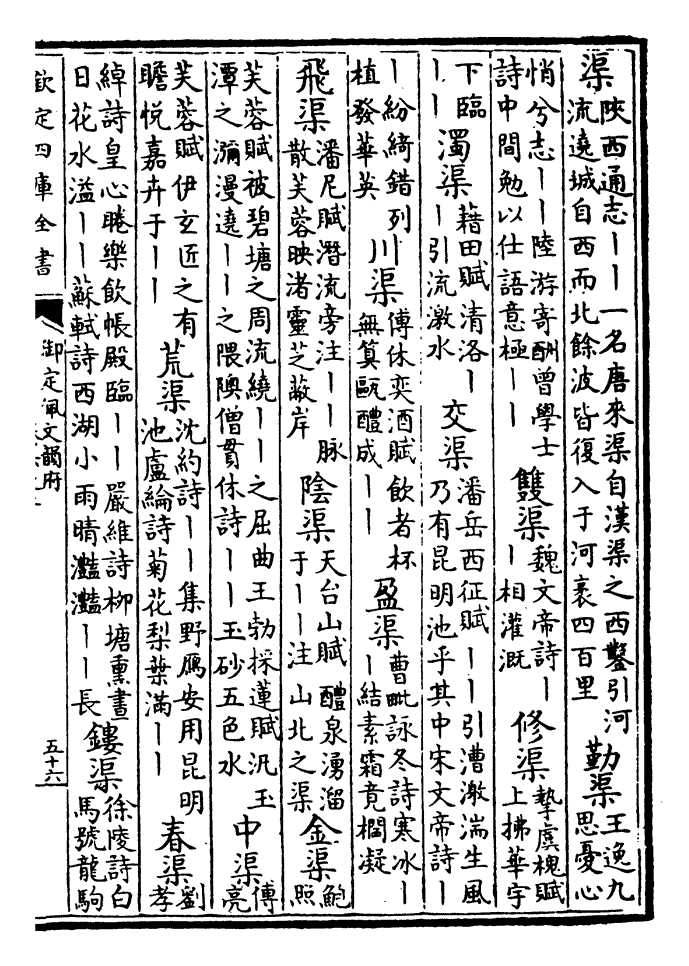 渠陜西通志丨丨一名唐來渠自漢渠之西鑿引河流遶城自西而北餘波皆復入于河袤四百里勤渠王逸九思憂心
悄兮志丨丨陸游寄酬曾學士詩中間勉以仕語意極丨丨雙渠魏文帝詩丨丨相灌溉修渠摯虞槐賦上拂華宇
下臨丨丨濁渠藉田賦清洛丨丨引流激水交渠潘岳西征賦丨丨引漕激湍生風乃有昆明池乎其中宋文帝詩丨
丨紛綺錯列植發華英川渠傅休奕酒賦飲者杯無筭甌醴成丨丨盈渠曹毗詠冬詩寒冰丨丨結素霜竟櫩凝
飛渠潘尼賦潛流旁注丨丨脉散芙蓉映渚靈芝蔽岸陰渠天台山賦醴泉湧溜于丨丨注山北之渠金渠鮑照
芙蓉賦被碧塘之周流繞丨丨之屈曲王勃採蓮賦汎玉潭之瀰漫遶丨丨之隈隩僧貫休詩丨丨玉砂五色水中渠傅亮
芙蓉賦伊玄匠之有瞻悅嘉卉于丨丨荒渠沈約詩丨丨集野鴈安用昆明池盧綸詩菊花梨葉滿丨丨春渠劉孝
綽詩皇心睠樂飲帳殿臨丨丨嚴維詩柳塘熏晝日花水溢丨丨蘇軾詩西湖小雨晴灩灩丨丨長鏤渠徐陵詩白馬號龍駒
欽定四庫全書
御定佩文韻府
五十六